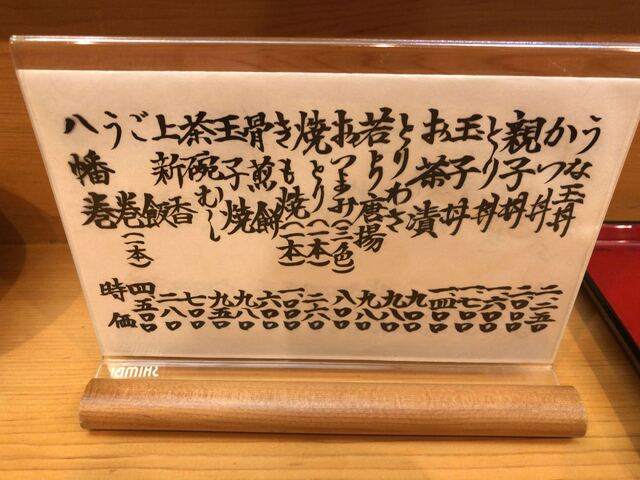 うな玉丼 二、二五〇
かつ丼 二、〇〇〇
親子丼 一、六〇〇
とり丼 一、七〇〇
玉子丼 一、四〇〇
お茶漬 九〇〇
とりわさ 九八〇
若とり唐揚 九八〇
おつまみ(三色) 八〇〇
焼とり(一本) 二六〇
きも焼(一本)
骨煎餅 六〇〇
玉子焼 九八〇
茶碗むし 九五〇
上新香 七〇〇
ご飯 二八〇
う巻(一本) 四五〇〇
八幡巻 時価